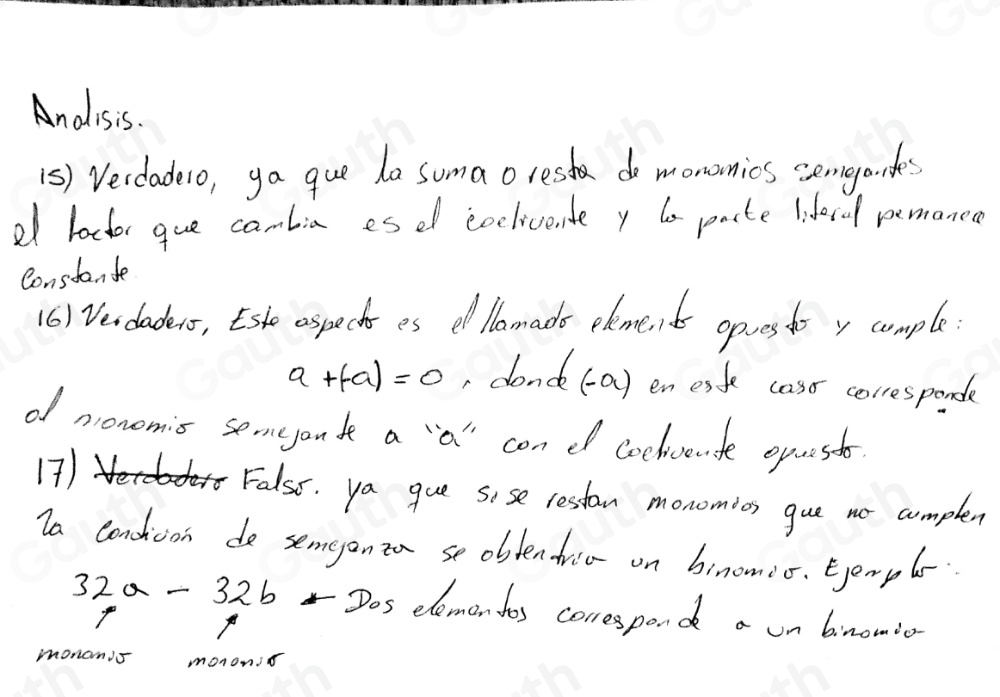 Analisis.
15) Verdadero, ya que la suma o resta de monomios semejantes
el factor que cambia es el coeficiente y la parte literal permanece
Constante.
16) Verdadero, Este aspecto es el llamado elemento opuesto y cumple:
a + (-a) = 0, donde (-a) en este caso corresponde
al monomio semejante a "a" con el coeficiente opuesto.
17) Verdadero Falso. ya que si se restan monomios que no cumplen
la condición de semejanza se obtendría un binomio. Ejemplo:
32a - 32b ← Dos elementos corresponde a un binomio
monomio monomio
Gauth